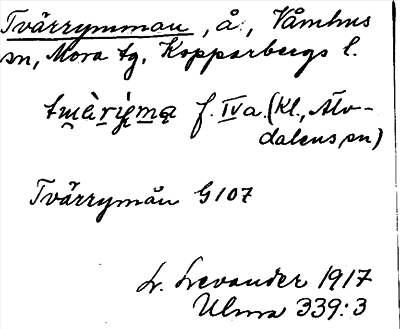 Tvärrymman, å, Våmhus
sn, Mora tg, Kopparbergs l.
f. IV a. (Kl., Älv-
dalens sn)
Tvärrymån G107
L. Levander 1917
Ulma 339:3